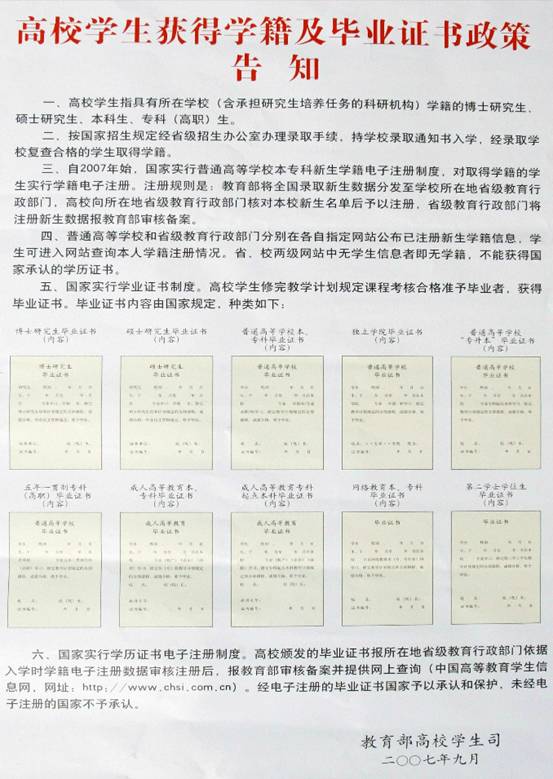 高校学生获得学籍及毕业证书政策
告 知
一、高校学生指具有所在学校（含承担研究生培养任务的科研机构）学籍的博士研究生、
硕士研究生、本科生、专科（高职）生。
二、按国家招生规定经省级招生办公室办理录取手续，持学校录取通知书入学，经录取学
校复查合格的学生取得学籍。
三、自2007年始，国家实行普通高等学校本专科新生学籍电子注册制度，对取得学籍的学
生实行学籍电子注册。注册规则是：教育部将全国录取新生数据分发至学校所在地省级教育行
政部门，高校向所在地省级教育行政部门核对本校新生名单后予以注册，省级教育行政部门将
注册新生数据报教育部审核备案。
四、普通高等学校和省级教育行政部门分别在各自指定网站公布已注册新生学籍信息，学
生可进入网站查询本人学籍注册情况。省、校两级网站中无学生信息者即无学籍，不能获得国
家承认的学历证书。
五、国家实行学业证书制度。高校学生修完教学计划规定课程考核合格准予毕业者，获得
毕业证书。毕业证书内容由国家规定，种类如下：
博士研究生毕业证书
（内容）
硕士研究生毕业证书
（内容）
普通高等学校本、
专科毕业证书
（内容）
独立学院毕业证书
（内容）
普通高等学校
“专升本”毕业证书
（内容）
博士研究生
毕业证书
硕士研究生
毕业证书
普通高等学校
毕业证书
普通高等学校
毕业证书
普通高等学校
毕业证书
五年一贯制专科
（高职）毕业证书
（内容）
成人高等教育本、
专科毕业证书
（内容）
成人高等教育专科
起点本科毕业证书
（内容）
网络教育本、专科
毕业证书
（内容）
第二学士学位生
毕业证书
（内容）
普通高等学校
毕业证书
成人高等教育
毕业证书
成人高等教育
毕业证书
毕业证书
毕业证书
六、国家实行学历证书电子注册制度。高校颁发的毕业证书报所在地省级教育行政部门依据
入学时学籍电子注册数据审核注册后，报教育部审核备案并提供网上查询（中国高等教育学生信
息网，网址：http://www.chsi.com.cn）。经电子注册的毕业证书国家予以承认和保护，未经电
子注册的国家不予承认。
教育部高校学生司
二〇〇七年九月